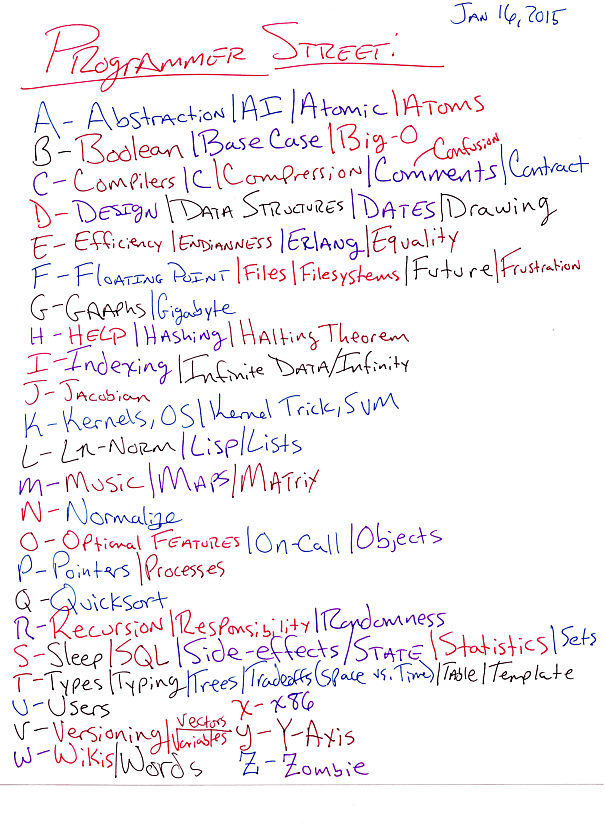 Jan 16, 2015
Programmer Street:
A - Abstraction | AI | Atomic | Atoms
B - Boolean | Base Case | Big-O
Confusion
C - Compilers | C | Compression | Comments | Contract
D - Design | Data Structures | Dates | Drawing
E - Efficiency | Endianness | Erlang | Equality
F - Floating Point | Files | Filesystems | Future | Frustration
G - Graphs | Gigabyte
H - Help | Hashing | Halting Theorem
I - Indexing | Infinite Data/Infinity
J - Jacobian
K - Kernels, OS | Kernel Trick, SVM
L - Ln-Norm | Lisp | Lists
M - Music | Maps | Matrix
N - Normalize
O - Optional Features | On-Call | Objects
P - Pointers | Processes
Q - Quicksort
R - Recursion | Responsibility | Randomness
S - Sleep | SQL | Side-effects / State | Statistics | Sets
T - Types | Typing | Trees | Tradeoffs (Space vs. Time) | Table | Template
U - Users
V - Versioning | Vectors Variables
W - Wikis | Words
X - x86
y - Y-Axis
Z - Zombie